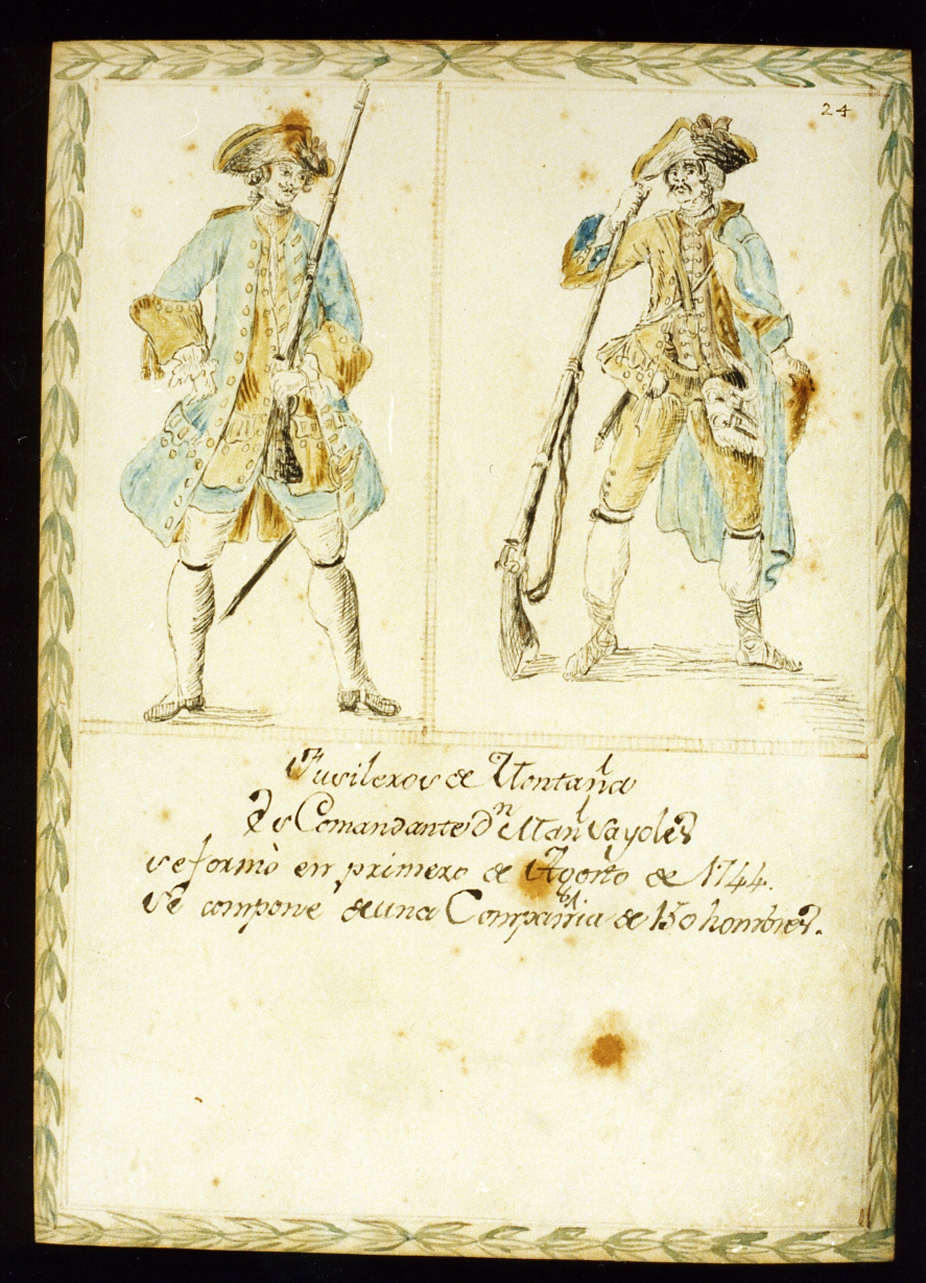 24
Fusileros de Montaña
Es Comandante Dn Manl Sayoles
se formò en primero de Agosto de 1744.
Se compone de una Compañia de 150 hombres.